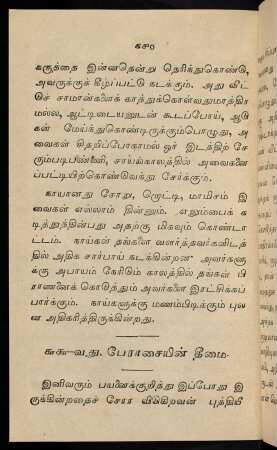 ௬௪௦
கருத்தை இன்னதென்று தெரிக்துகொண்டு,
அவருக்குக் கீழ்ப்பட்டு கடக்கும். அது வீட்
டுச் சாமான்களைக் காத்துக்கொள்வதுமாத்திர
மல்ல, ஆட்டிடையனுடன் கூடப்போய், ஆடு
கள் மேய்ந்துகொண்டிருக்கும்பொழுது, அ
வைகள் சிதறிப்போகாமல் ஓர் இடத்திற் சே
ரும்படிபண்ணி, சாய்ங்காலத்தில் அவைகளை
ப்பட்டியிற்கொண்வெந்து சேர்க்கும்.
காயானது சோறு, ரொட்டி, மாமிசம் இ
வைகள் எல்லாம் தின்னும். எலும்பைக் க
டித்துத்தின்பது அதற்கு மிகவும் கொண்டா
ட்டம். நாய்கள் தங்களை வளர்த்தவர்களிடத்
தில் அதிக சார்பாய் கடக்கின்றன அவர்களு
க்கு அபாயம் கேரிடும் காலத்தில் தங்கள் பி
ராணனைக் கொடுத்தும் அவர்களை இரட்சிக்கப்
பார்க்கும். நாய்களுக்கு மணம்பிடிக்கும் புல
ன் அதிகரித்திருக்கின்றது.
௬௬-வது. பேராசையின் தீமை.
இனிவரும் பயனைக்குறித்து இப்போது இ
ருக்கின்றதைச் சோர விடுகிறவன் புத்தியீ